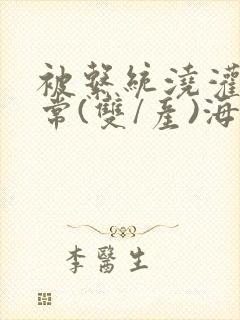 被繫統澆灌
常(雙/産)海
李醫生